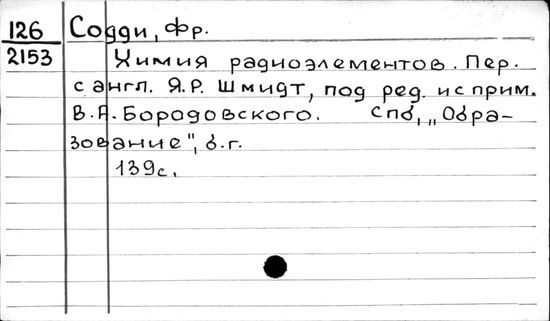 126 Содди, Фр.
2153 Химия радиоэлементов. Пер.
с англ. Я.Р. Шмидт, под ред. и с прим.
В.А. Бородовского. Спб, „Обра-
зование", б.г.
139с.